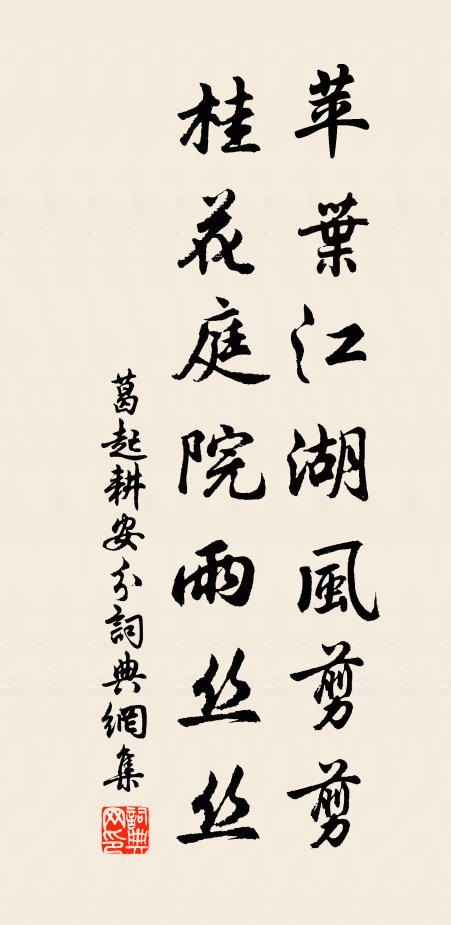 苹葉江湖風剪剪
桂花庭院雨丝丝
葛起耕安分詞典網集
詞典
网印